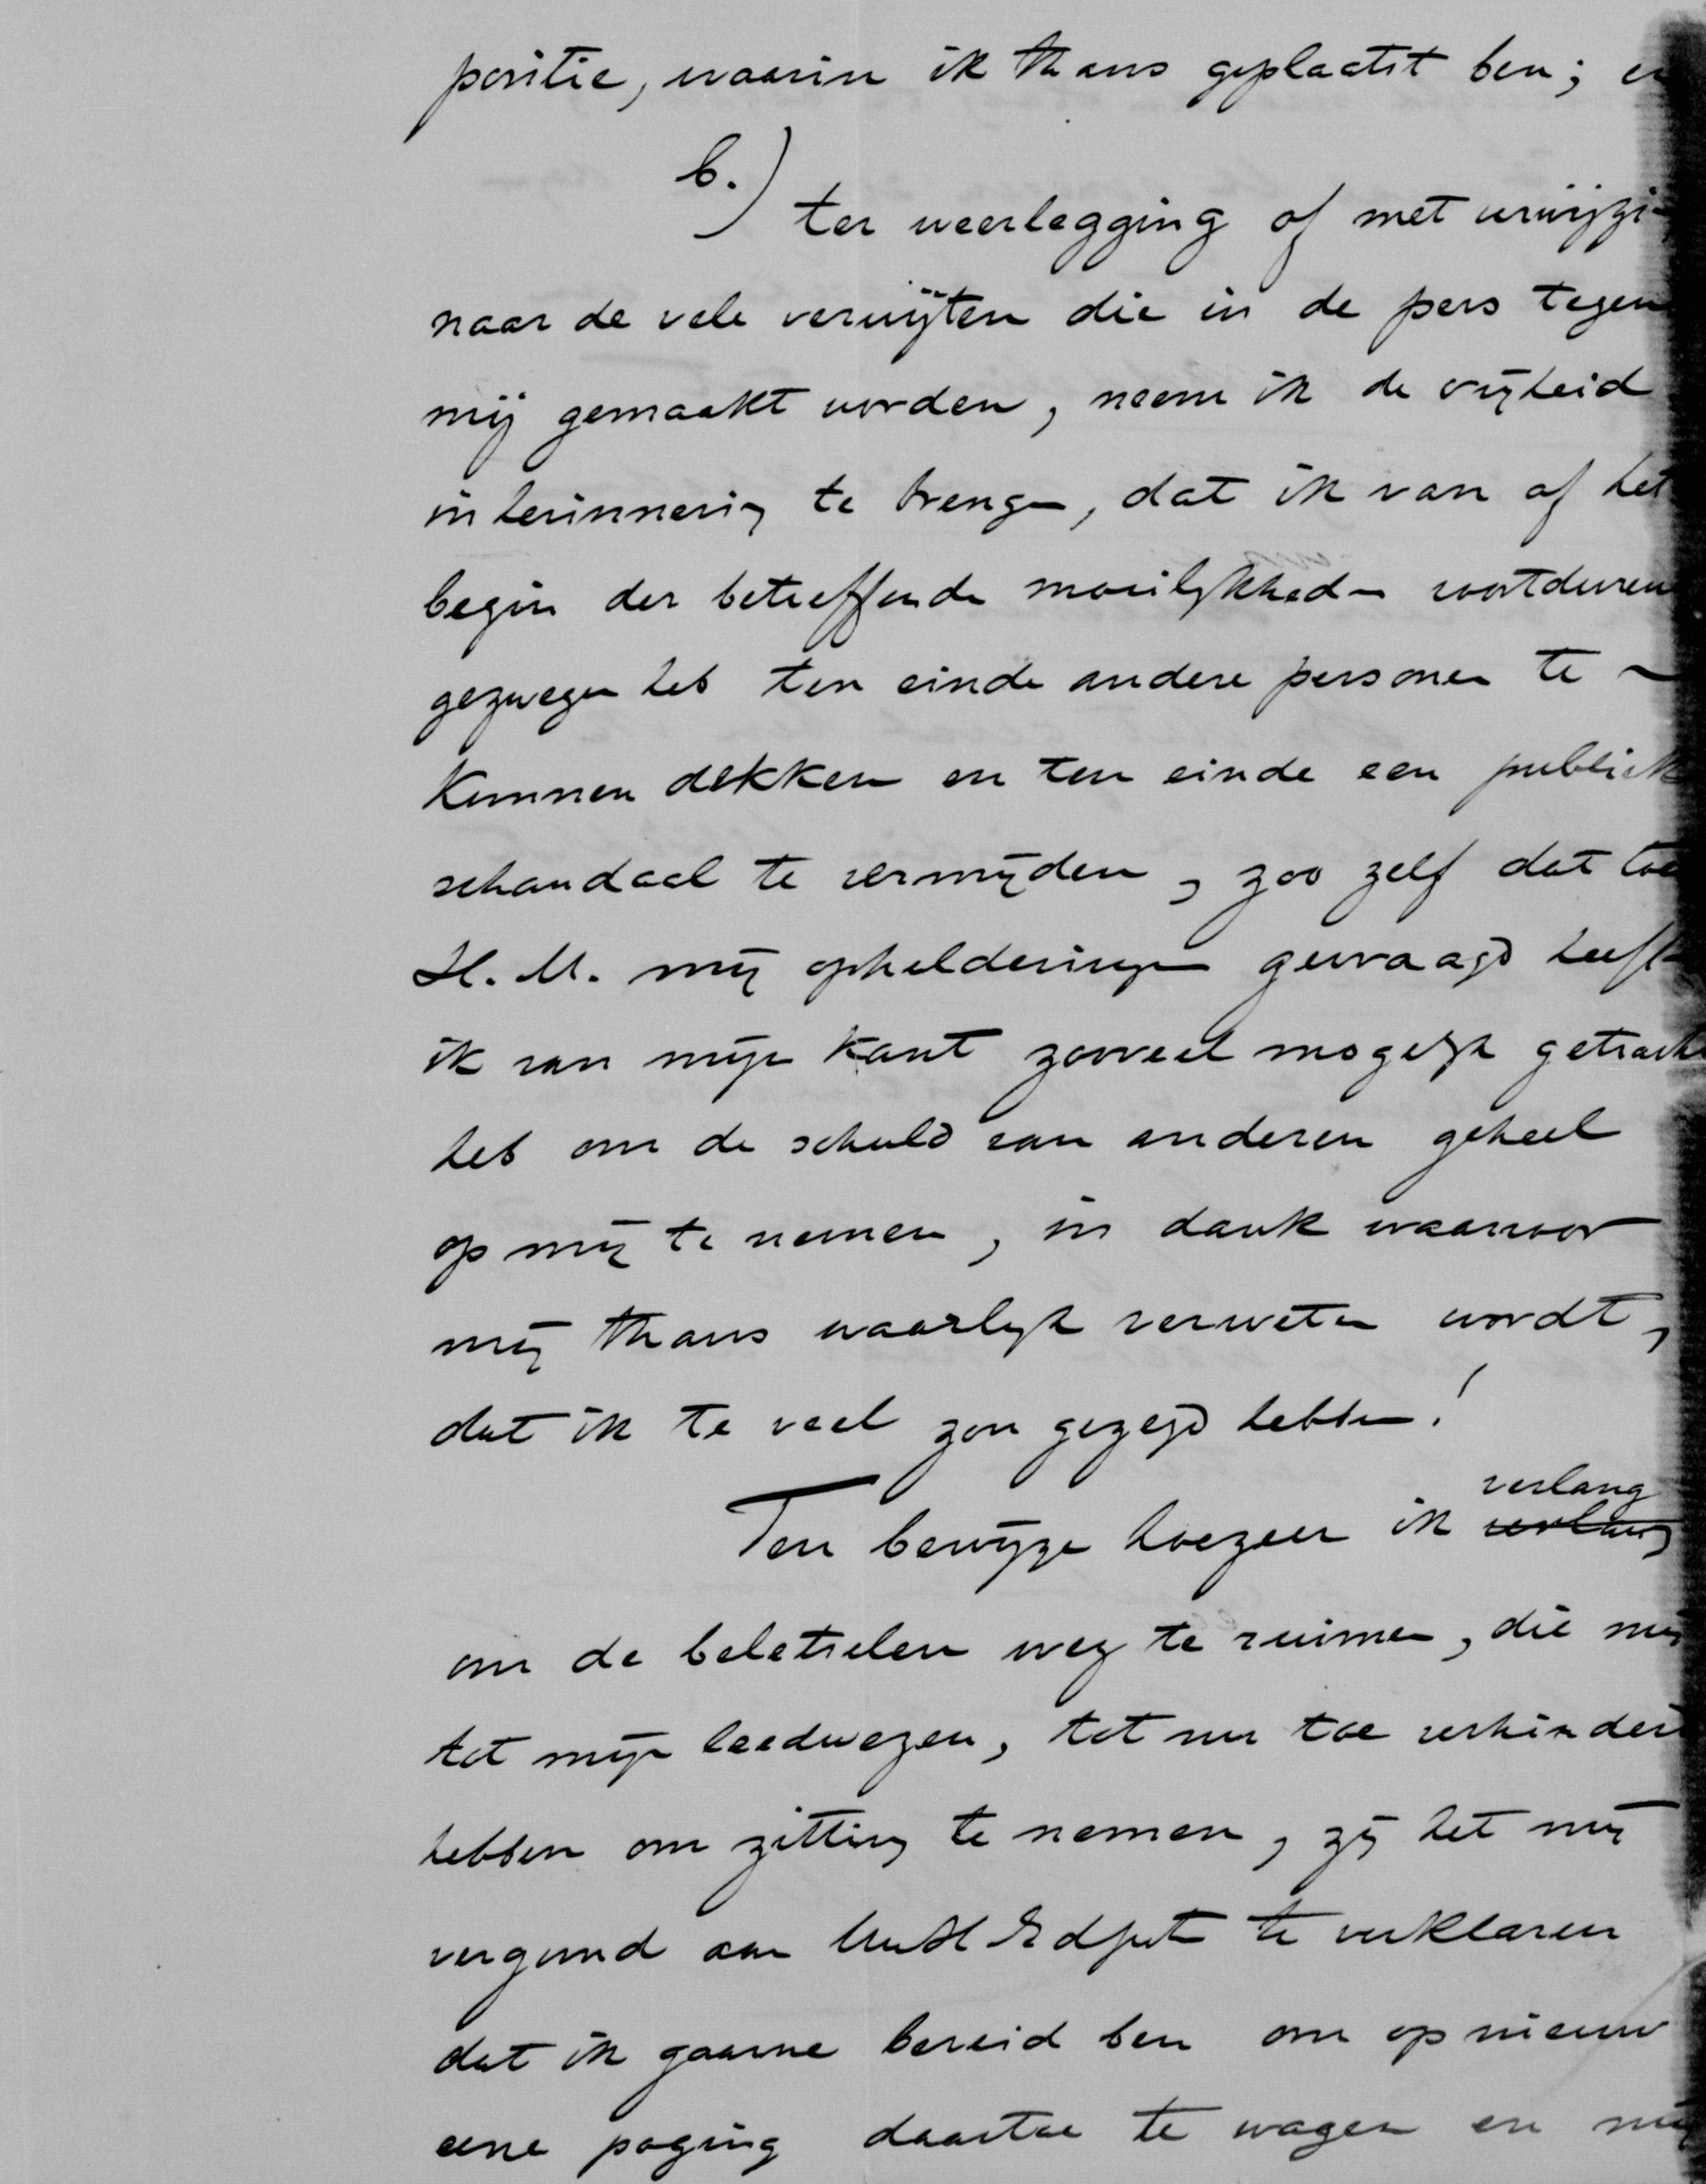 positie, waarin ik thans geplaatst ben; en
b.)
ter weerlegging of met verwijzi
naar de vele verwijten die in de pers tegen
mij gemaakt worden, neem ik de vrijheid
in herinnering te brengen, dat ik van af het
begin der betreffende moeilijkheden voortduren
gezwegen heb ten einde andere personen te
kunnen dekken en ten einde een publiek
schandaal te vermijden, zoo zelf dat toe
H. M. mij ophelderingen gevraagd heeft
ik van mijn kant zooveel mogelijk getracht
heb om de schuld van anderen geheel
op mij te nemen, in dank waarvoor
mij thans waarlijk verweten wordt,
dat ik te veel zou gezegd hebben!
verlang
Ten bewijze hoezeer ik verlang
om de beletselen weg te ruimen, die mij
tot mijn leedwezen, tot nu toe verhinderd
hebben om zitting te nemen, zij het mij
vergund aan te verklaren
dat ik gaarne bereid ben om op nieuw
eene poging daartoe te wagen en mij